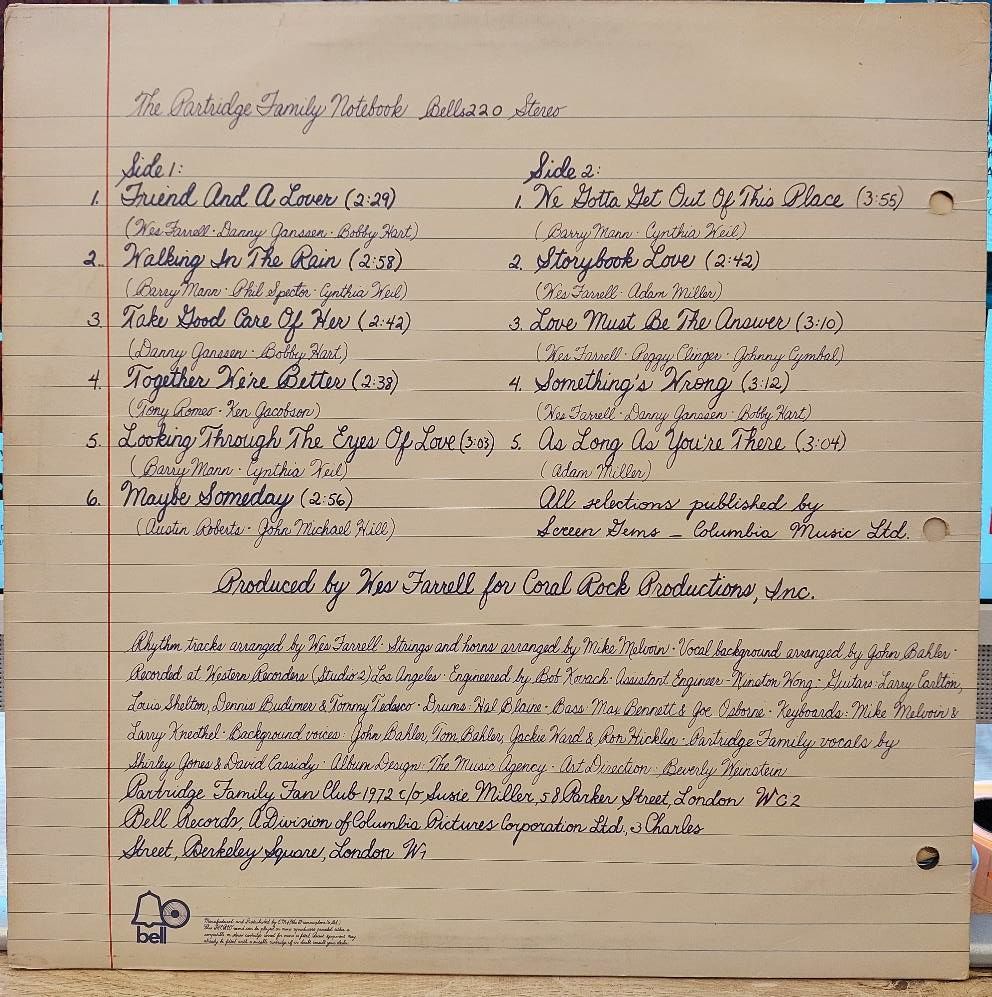 The Partridge Family Notebook Bells220 Stereo
Side 1:
1. Friend And A Lover (2:29)
(Wes Farrell · Danny Janssen · Bobby Hart)
2. Walking In The Rain (2:58)
(Barry Mann · Phil Spector · Cynthia Weil)
3. Take Good Care Of Her (2:42)
(Danny Janssen · Bobby Hart)
4. Together We're Better (2:38)
(Tony Romeo · Ken Jacobson)
5. Looking Through The Eyes Of Love (3:03)
(Barry Mann · Cynthia Weil)
6. Maybe Someday (2:56)
(Austin Roberts · John Michael Hill)
Side 2:
1. We Gotta Get Out Of This Place (3:55)
(Barry Mann · Cynthia Weil)
2. Storybook Love (2:42)
(Wes Farrell · Adam Miller)
3. Love Must Be The Answer (3:10)
(Wes Farrell · Peggy Clinger · Johnny Cymbal)
4. Something's Wrong (3:12)
(Wes Farrell · Danny Janssen · Bobby Hart)
5. As Long As You're There (3:04)
(Adam Miller)
All selections published by
Screen Gems – Columbia Music Ltd.
Produced by Wes Farrell for Coral Rock Productions, Inc.
Rhythm tracks arranged by Wes Farrell · Strings and horns arranged by Mike Melvoin · Vocal background arranged by John Bahler ·
Recorded at Western Recorders (Studio 2) Los Angeles · Engineered by Bob Kovach · Assistant Engineer – Winston Wong · Guitars: Larry Carlton,
Louis Shelton, Dennis Budimer & Tommy Tedesco · Drums: Hal Blaine · Bass: Max Bennett & Joe Osborne · Keyboards: Mike Melvoin &
Larry Knecthel · Background voices: John Bahler, Tom Bahler, Jackie Ward & Ron Hicklin · Partridge Family vocals by
Shirley Jones & David Cassidy · Album Design: The Music Agency · Art Direction: Beverly Weinstein
Partridge Family Fan Club 1972 c/o Susie Miller, 58 Parker Street, London WC2
Bell Records, A Division of Columbia Pictures Corporation Ltd, 3 Charles
Street, Berkeley Square, London W1
bell